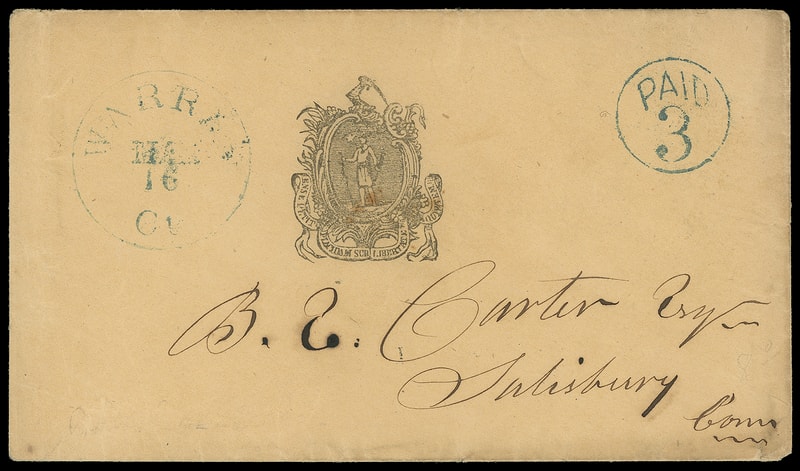 WARREN
MAR
16
Ct
PAID
3
ENSE PETIT PLACIDAM SUB LIBERTATE QUIETEM
B. E. Carter Esqr
Salisbury
Conn